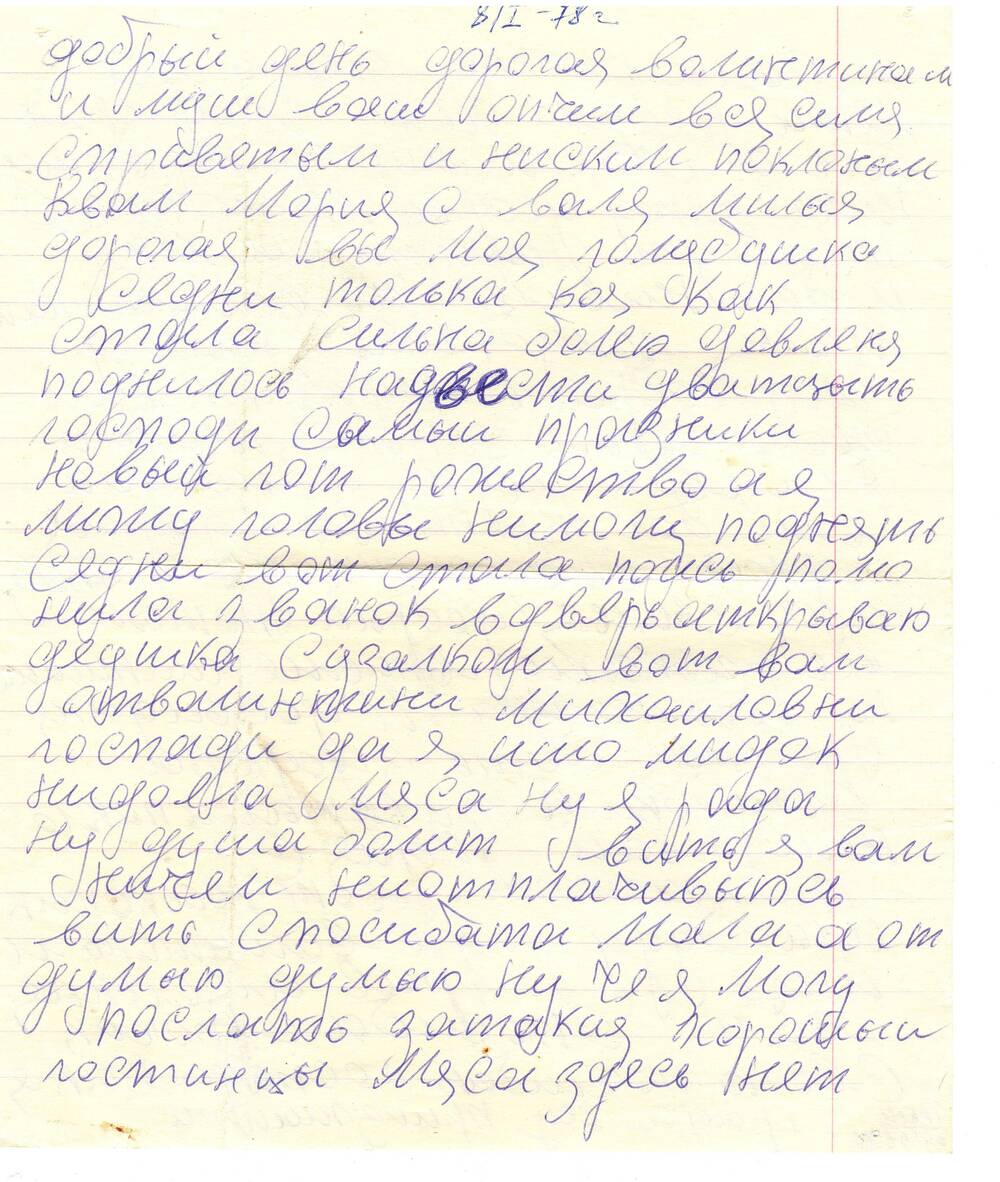 8/I-78 г
добрый день дорогая валинтинам
и муш ваш опчим вся симя
справятым и ниским поклоным
Квам Мория с валя милыя
дорогая вы моя голубушка
Седни толька коя как
стала сильна болею довленя
поднилось надвести дватцыть
господи самыи празники
новый гот рожество а я
лижу головы нимогу поднять
Седни вот стала
званок вдвярь аткрываю
дедушка Сузалком вот вам
атвалинтини Михаиловни
госпади да я ишо мидок
нидоела Мяса ну я рада
ну душа болит вить я вам
ничем ниотплачивыюсь
вить спосибата Мала а от
думыю думыю ну че я Могу
послать затакия хорошыи
гостинцы Мяса здесь нет